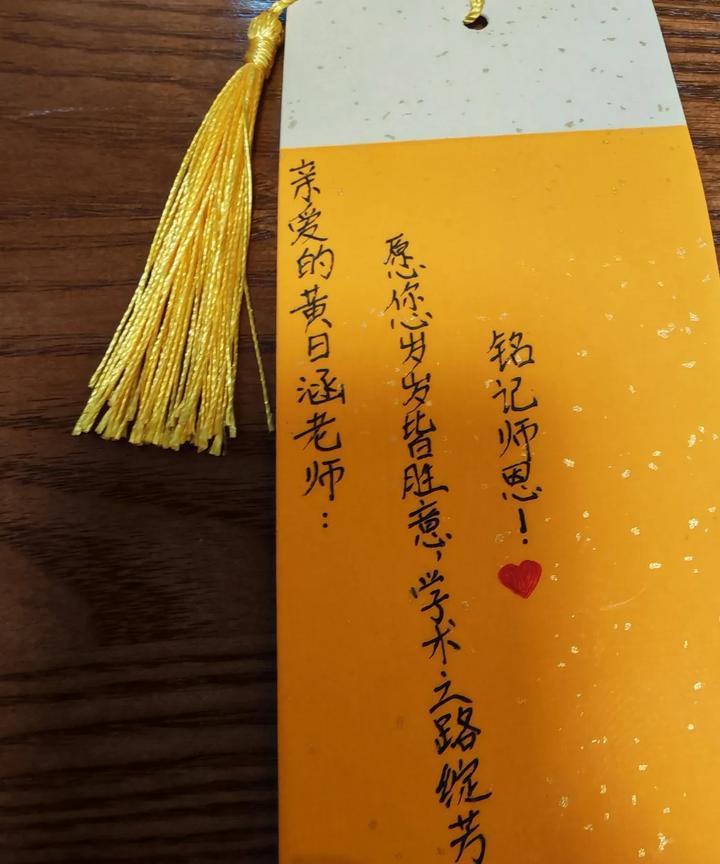 亲爱的黄日涵老师：
愿您岁岁皆胜意，学术之路绽芳
铭记师恩！